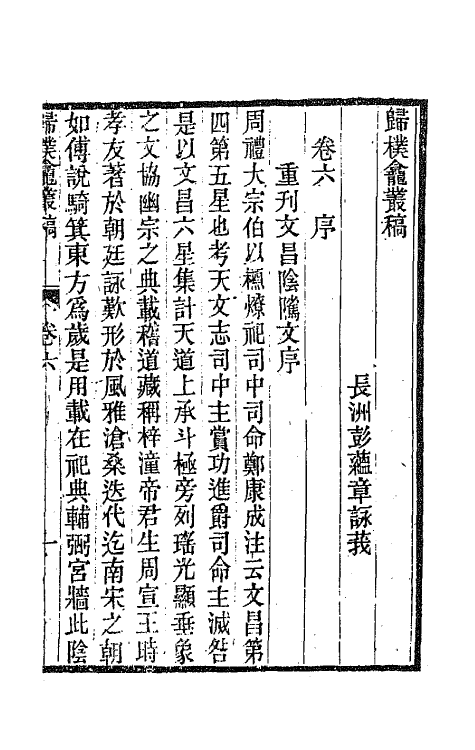 歸樸龕叢稿
長洲彭蘊章詠莪
卷六 序
重刊文昌陰隲文序
周禮大宗伯以槱燎祀司中司命鄭康成注云文昌第
四第五星也考天文志司中主賞功進爵司命主滅咎
是以文昌六星集計天道上承斗極旁列瑤光顯垂象
之文協幽宗之典載稽道藏稱梓潼帝君生周宣王時
孝友著於朝廷詠歎形於風雅滄桑迭代迄南宋之朝
如傅說騎箕東方爲歲是用載在祀典輔弼宮牆此陰
歸樸龕叢稿 卷六 一